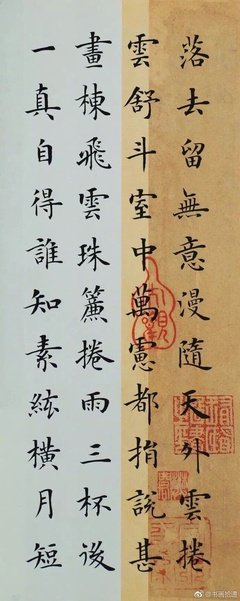 落去留無意漫隨天外雲捲
雲舒斗室中萬憲都捐說甚
畫棟飛雲珠簾捲雨三杯後
一真自得誰知素絃橫月短
@书画拾遗